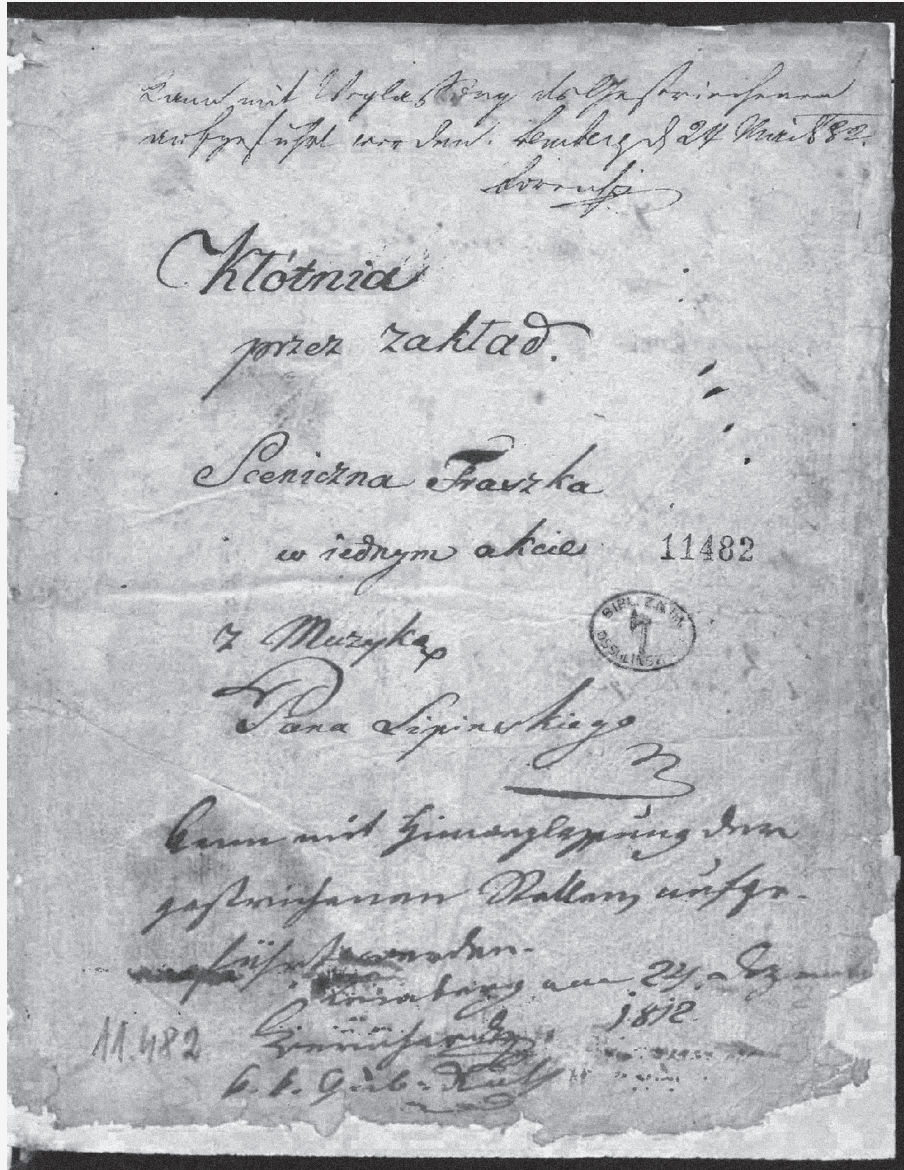 Kann mit Weglassung des Gestrichenen
aufgeführt werden. Lemberg d 24 Mai 832.
Kłótnia
przez zakład.
Sceniczna Fraszka
w iednym akcie
11482
z Muzyką
BIBL. ZAKŁ. OSSOLIŃSK.
Pana Lipińskiego
Kann mit Hinweglassung der
gestrichenen Stellen aufge-
führt werden.
Lemberg am 24.
1812
11.482
k. k. Gub. Rath